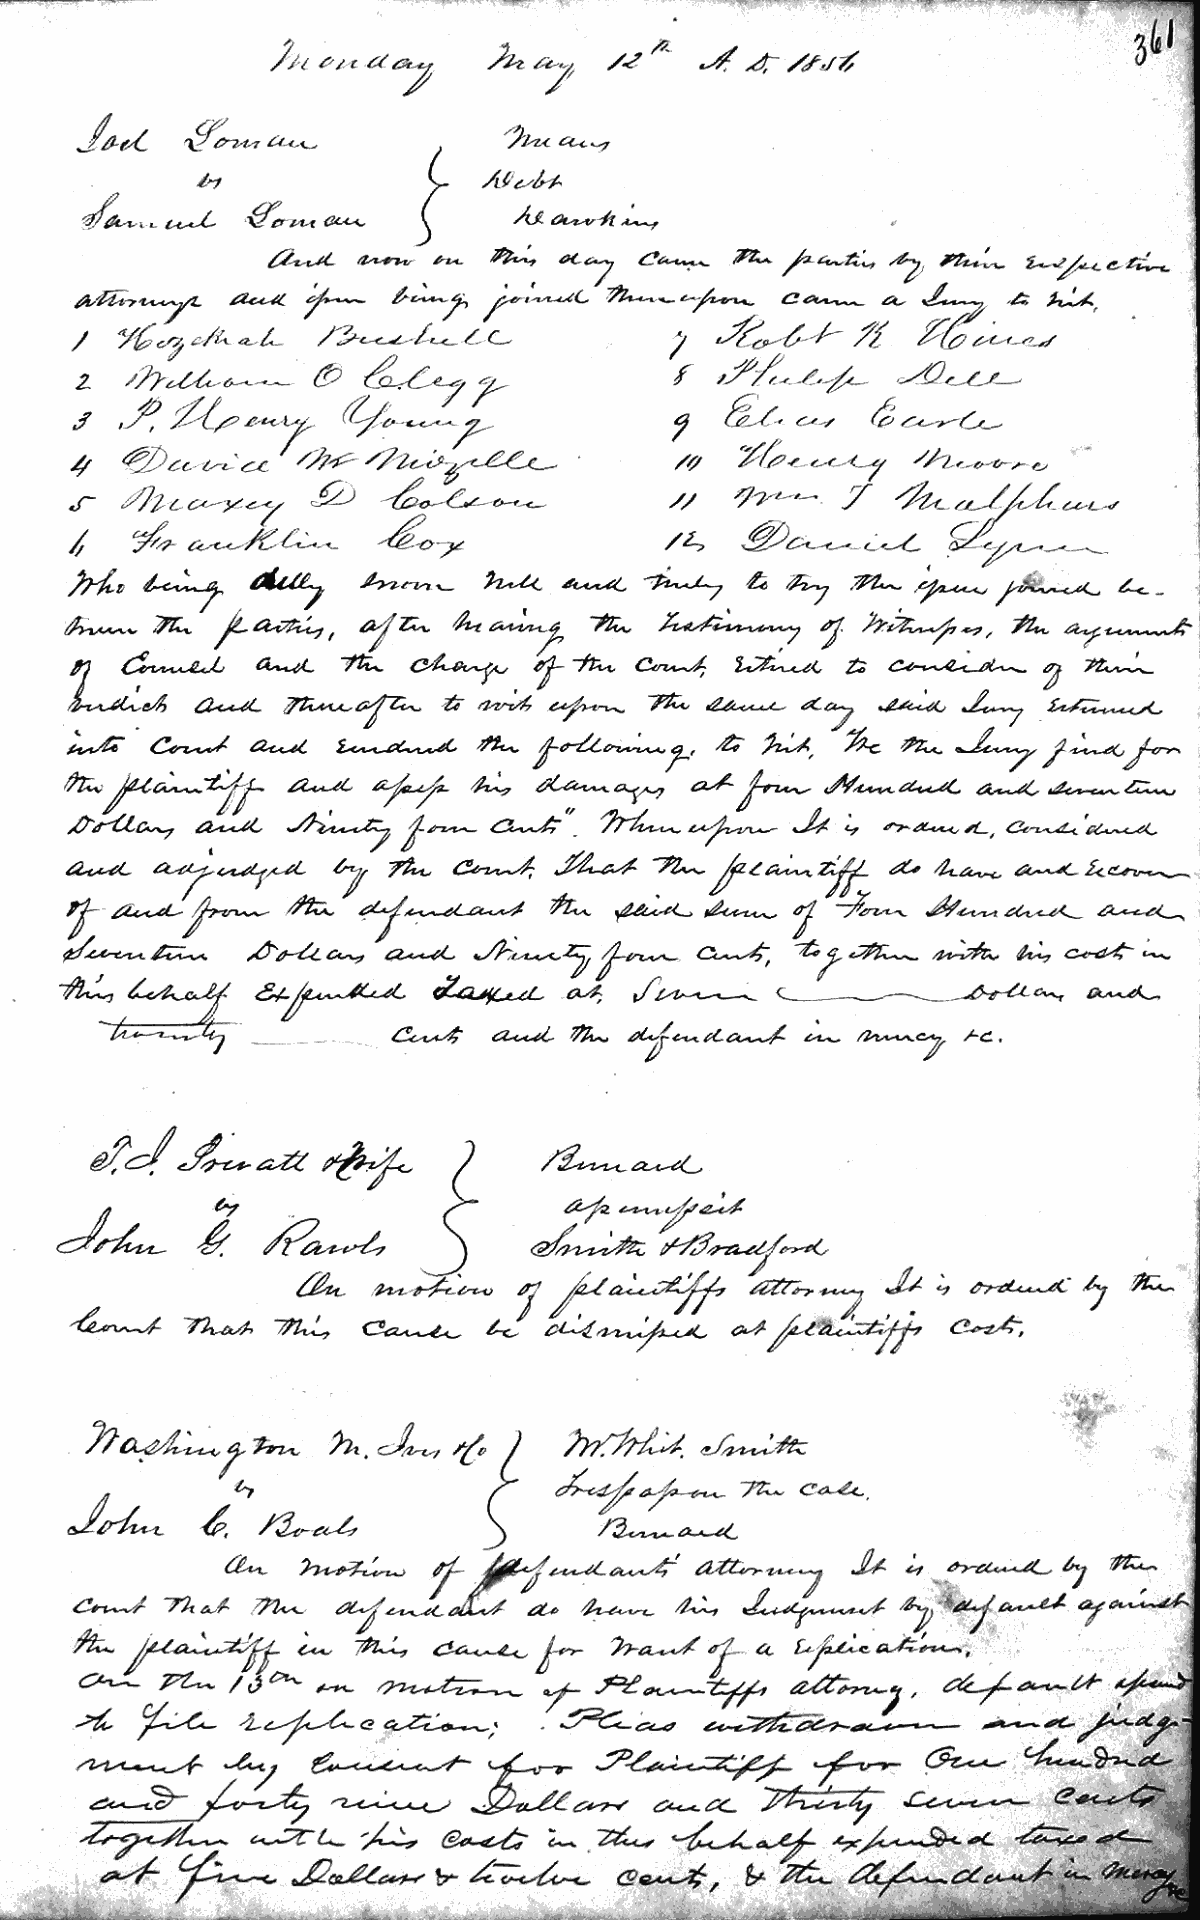 361
Monday May 12th A. D. 1856
Joel Loman Means
vs Debt
Samuel Loman Dawkins
And now on this day came the parties by their respective
attorneys and issue being joined thereupon came a Jury to wit,
1 Hozekiah Bushell 7 Robt R Hines
2 William O Clegg 8 Philip Dell
3 P. Henry Young 9 Elias Earle
4 David W Mizelle 10 Henry Moore
5 Maxey D Colson 11 Wm T Malphurs
6 Franklin Cox 12 Daniel
Who being duly sworn well and truly to try the issue joined be-
tween the parties, after hearing the testimony of Witnesses, the arguments
of Counsel and the charge of the Court, retired to consider of their
verdict and thereafter to wit upon the same day said Jury returned
into Court and rendered the following, to wit, We the Jury find for
the plaintiff and assess his damages at four Hundred and seventeen
Dollars and Ninety four cents". Whereupon It is ordered, considered
and adjudged by the Court, That the plaintiff do have and recover
of and from the defendant the said sum of Four Hundred and
Seventeen Dollars and Ninety four cents, together with his costs in
this behalf Expended Taxed at, Seven Dollars and
twenty cents and the defendant in mercy &c.
T. J. Prevatt & Wife Bernard
vs assumpsit
John G. Rawls Smith & Bradford
On motion of plaintiffs attorney It is ordered by the
Court that this cause be dismissed at plaintiffs costs.
Washington M. Ives & Co W. Whit. Smith
vs Trespass on the case.
John C. Boals Bernard
On motion of defendants attorney It is ordered by the
court that the defendant do have his Judgment by default against
the plaintiff in this cause for want of a replication.
On the 13th on motion of Plaintiffs attorney, default opened
to file replication; Pleas withdrawn and judg-
ment by consent for Plaintiff for One hundred
and forty nine Dollars and thirty seven cents
together with his costs in this behalf expended taxed
at five Dollars & twelve cents, & the defendant in mercy &c